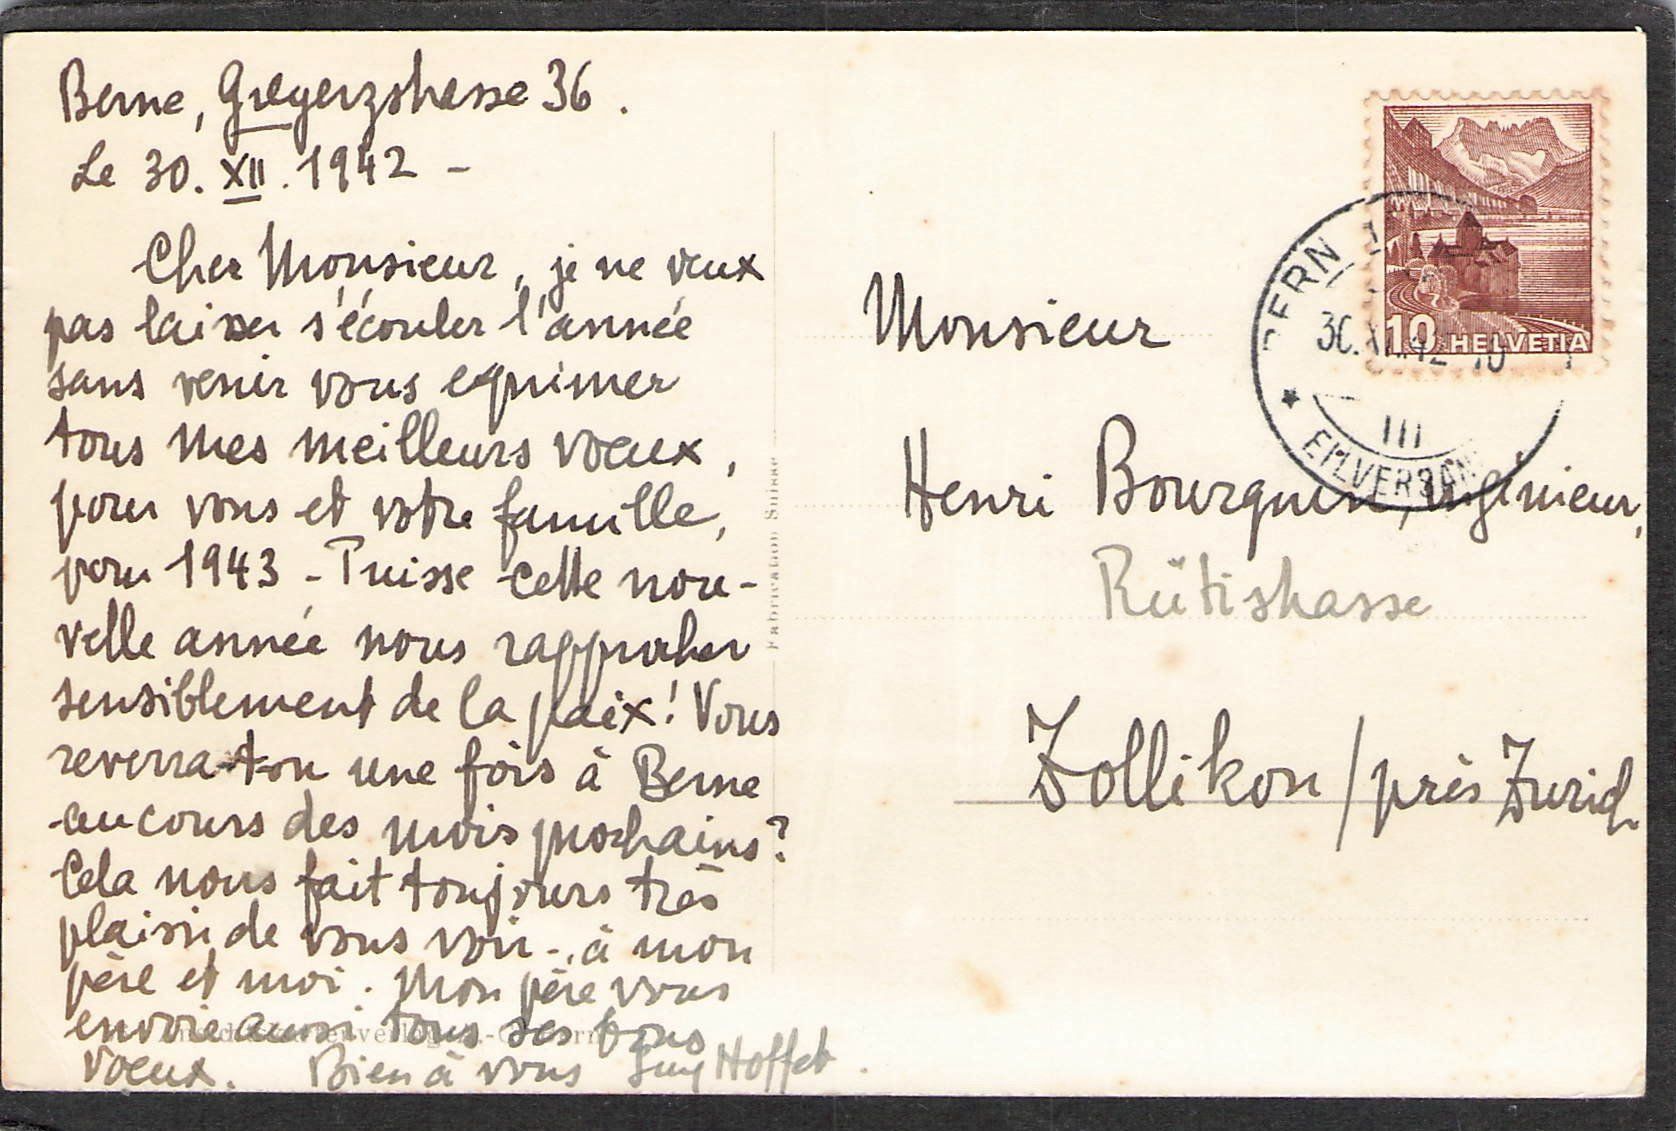 Berne, Greyerzstrasse 36.
Le 30. XII. 1942 -
Cher Monsieur, je ne veux
pas laisser s'écouler l'année
sans venir vous exprimer
tous mes meilleurs voeux,
pour vous et votre famille,
pour 1943 - Puisse cette nou-
velle année nous rapprocher
sensiblement de la paix! Vous
reverra-t-on une fois à Berne
au cours des mois prochains?
Cela nous fait toujours très
plaisir de vous voir -, à mon
père et moi. Mon père vous
envoie aussi tous ses bons
voeux. Bien à vous Guy Hoffet.
Fabrication Suisse
10 HELVETIA
BERN 1
30.XII.42
III
EILVERSAN
Monsieur
Henri Bourquin, ingénieur,
Rütistrasse
Zollikon / près Zurich